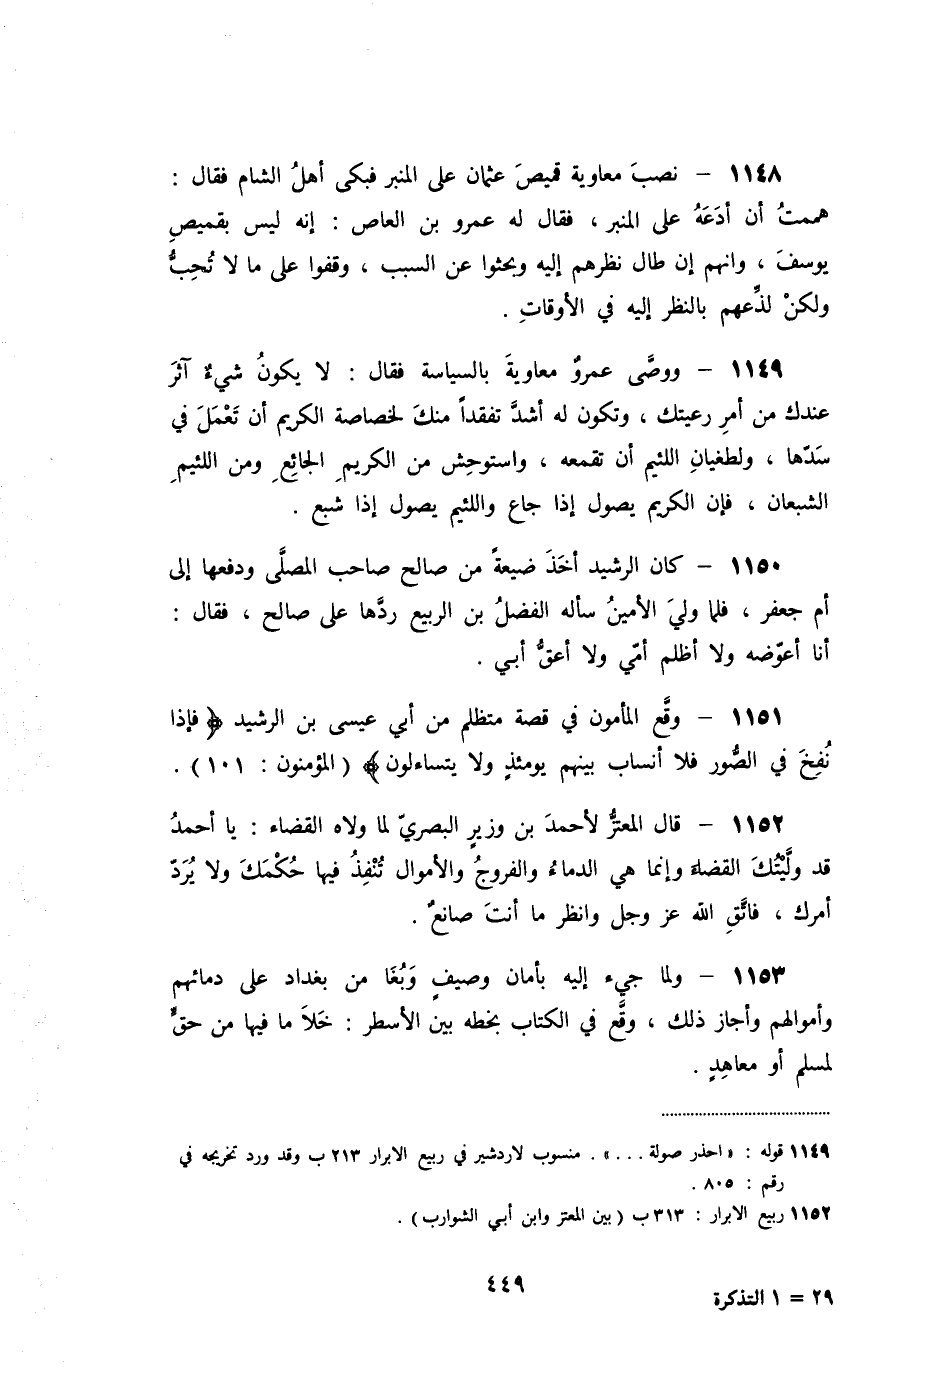 ١١٤٨ – نصبَ معاوية قميصَ عثمان على المنبر فبكى أهلُ الشام فقال :
هممتُ أن أدَعَهُ على المنبر ، فقال له عمرو بن العاص : إنه ليس بقميصِ
يوسفَ ، وانهم إن طال نظرهم إليه وبحثوا عن السبب ، وقفوا على ما لا تُحِبُّ
ولكنْ لذِّعهم بالنظر إليه في الأوقاتِ .
١١٤٩ – ووصَّى عمروٌ معاويةَ بالسياسة فقال : لا يكونُ شيءٌ آثرَ
عندك من أمرِ رعيتك ، وتكون له أشدَّ تفقداً منكَ لخصاصة الكريم أن تَعْمَلَ في
سَدّها ، ولطغيانِ اللئيم أن تقمعه ، واستوحِش من الكريمِ الجائعِ ومن اللئيمِ
الشبعان ، فإن الكريم يصول إذا جاع واللئيم يصول إذا شبع .
١١٥٠ – كان الرشيد أخَذَ ضيعةً من صالح صاحب المصلَّى ودفعها إلى
أم جعفر ، فلما وليَ الأمينُ سأله الفضلُ بن الربيع ردَّها على صالح ، فقال :
أنا أعوّضه ولا أظلم أمّي ولا أعقُّ أبي .
١١٥١ – وقَّع المأمون في قصة متظلم من أبي عيسى بن الرشيد ﴿ فإذا
نُفِخَ في الصُّور فلا أنساب بينهم يومئذٍ ولا يتساءلون ﴾ ( المؤمنون : ١٠١ ) .
١١٥٢ – قال المعتزُّ لأحمدَ بن وزيرٍ البصريّ لما ولاه القضاء : يا أحمدُ
قد ولَّيْتُكَ القضاء وإنما هي الدماءُ والفروجُ والأموال تُنْفِذُ فيها حُكْمَكَ ولا يُرَدّ
أمرك ، فاتَّقِ الله عز وجل وانظر ما أنتَ صانعٌ .
١١٥٣ – ولما جيء إليه بأمان وصيفٍ وَبُغَا من بغداد على دمائهم
وأموالهم وأجاز ذلك ، وقَّع في الكتاب بخطه بين الأسطر : خَلاَ ما فيها من حقٍّ
لمسلم أو معاهِدٍ .
١١٤٩ قوله : « احذر صولة . . . » . منسوب لاردشير في ربيع الابرار ٢١٣ ب وقد ورد تخريجه في
رقم : ٨٠٥ .
١١٥٢ ربيع الابرار : ٣١٣ ب ( بين المعتز وابن أبي الشوارب ) .
٤٤٩
٢٩ = ١ التذكرة